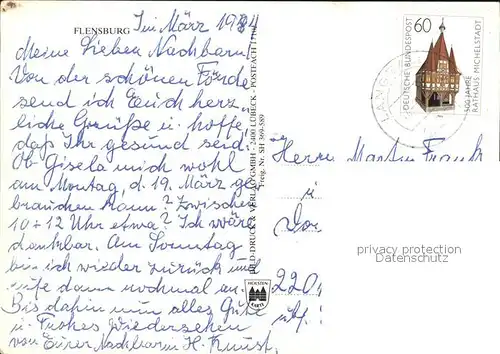 FLENSBURG
Im März 1984
Meine Lieben Nachbarn!
Von der schönen Förde
send ich Euch herz-
liche Grüße u. hoffe,
daß Ihr gesund seid.
Ob Gisela mich wohl
am Montag, d. 19. März ge-
brauchen kann? Zwischen
10 + 12 Uhr etwa? Ich wäre
dankbar. Am Sonntag
bin ich wieder zurück und
rufe dann nochmal an.
Bis dahin nun alles Gute
u. Frohes Wiedersehen
von Eurer Nachbarin H. Kunst.
BILD-DRUCK & VERLAG GMBH · 2400 LÜBECK · POSTFACH
Freig. Nr. SH 309-589
HOLSTEIN
KARTE
60
DEUTSCHE BUNDESPOST
500 JAHRE
RATHAUS MICHELSTADT
Herrn Martin Frank
u.
220
privacy protection
Datenschutz